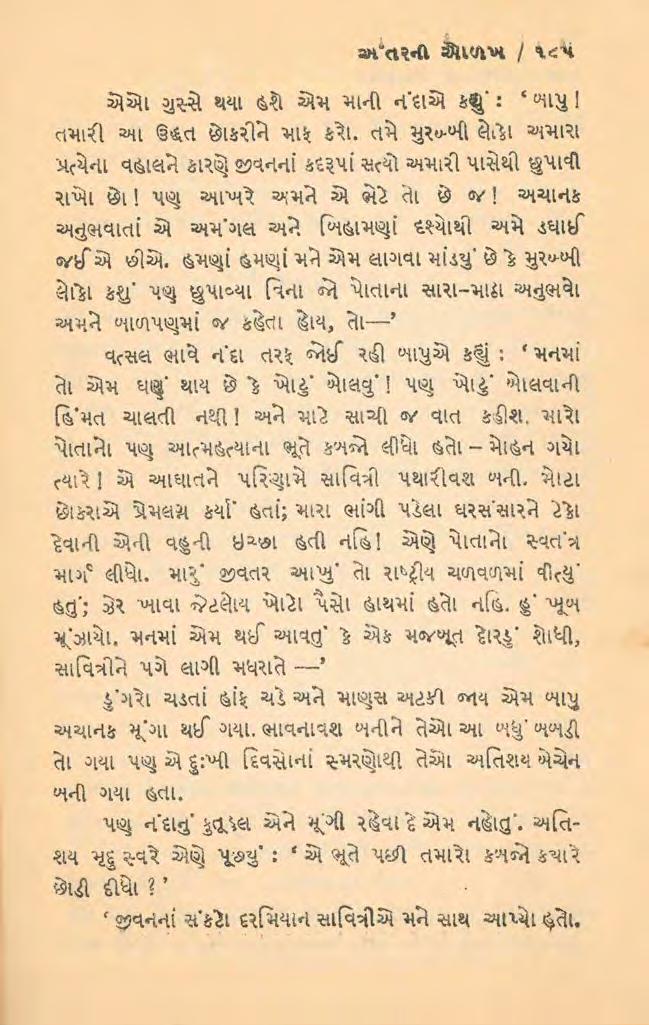 અંતરની ઓળખ / ૧૮૫
એઓ ગુસ્સે થયા હશે એમ માની નંદાએ કહ્યું : ‘ બાપુ !
તમારી આ ઉદ્ધત છોકરીને માફ કરો. તમે મુરબ્બી લોકો અમારા
પ્રત્યેના વહાલને કારણે જીવનનાં કદરૂપાં સત્યો અમારી પાસેથી છુપાવી
રાખો છો ! પણ આખરે અમને એ ભેટે તો છે જ ! અચાનક
અનુભવાતાં એ અમંગલ અને બિહામણાં દશ્યોથી અમે ડઘાઈ
જઈએ છીએ. હમણાં હમણાં મને એમ લાગવા માંડયું છે કે મુરબ્બી
લોકો કશું પણ છુપાવ્યા વિના જો પોતાના સારા-માઠા અનુભવો
અમને બાળપણમાં જ કહેતા હોય, તો—’
વત્સલ ભાવે નંદા તરફ જોઈ રહી બાપુએ કહ્યું : ‘ મનમાં
તો એમ ઘણું થાય છે કે ખોટું બોલવું ! પણ ખોટું બોલવાની
હિંમત ચાલતી નથી ! અને માટે સાચી જ વાત કહીશ. મારો
પોતાનો પણ આત્મહત્યાના ભૂતે કબજો લીધો હતો – મોહન ગયો
ત્યારે ! એ આઘાતને પરિણામે સાવિત્રી પથારીવશ બની. મોટા
છોકરાએ પ્રેમલગ્ન કર્યાં હતાં; મારા ભાંગી પડેલા ઘરસંસારને ટેકો
દેવાની એની વહુની ઇચ્છા હતી નહિ ! એણે પોતાનો સ્વતંત્ર
માર્ગ લીધો. મારું જીવતર આખું તો રાષ્ટ્રીય ચળવળમાં વીત્યું
હતું; ઝેર ખાવા જેટલોય ખોટો પૈસો હાથમાં હતો નહિ. હું ખૂબ
મૂંઝાયો. મનમાં એમ થઈ આવતું કે એક મજબૂત દોરડું શોધી,
સાવિત્રીને પગે લાગી મધરાતે —’
ડુંગરો ચડતાં હાંફ ચડે અને માણસ અટકી જાય એમ બાપુ
અચાનક મૂંગા થઈ ગયા. ભાવનાવશ બનીને તેઓ આ બધું બબડી
તો ગયા પણ એ દુઃખી દિવસોનાં સ્મરણોથી તેઓ અતિશય બેચેન
બની ગયા હતા.
પણ નંદાનું કુતૂહલ એને મૂંગી રહેવા દે એમ નહોતું. અતિ-
શય મૃદુ સ્વરે એણે પૂછયું : ‘ એ ભૂતે પછી તમારો કબજો કયારે
છોડી દીધો ? ’
‘ જીવનનાં સંકટો દરમિયાન સાવિત્રીએ મને સાથ આપ્યો હતો.